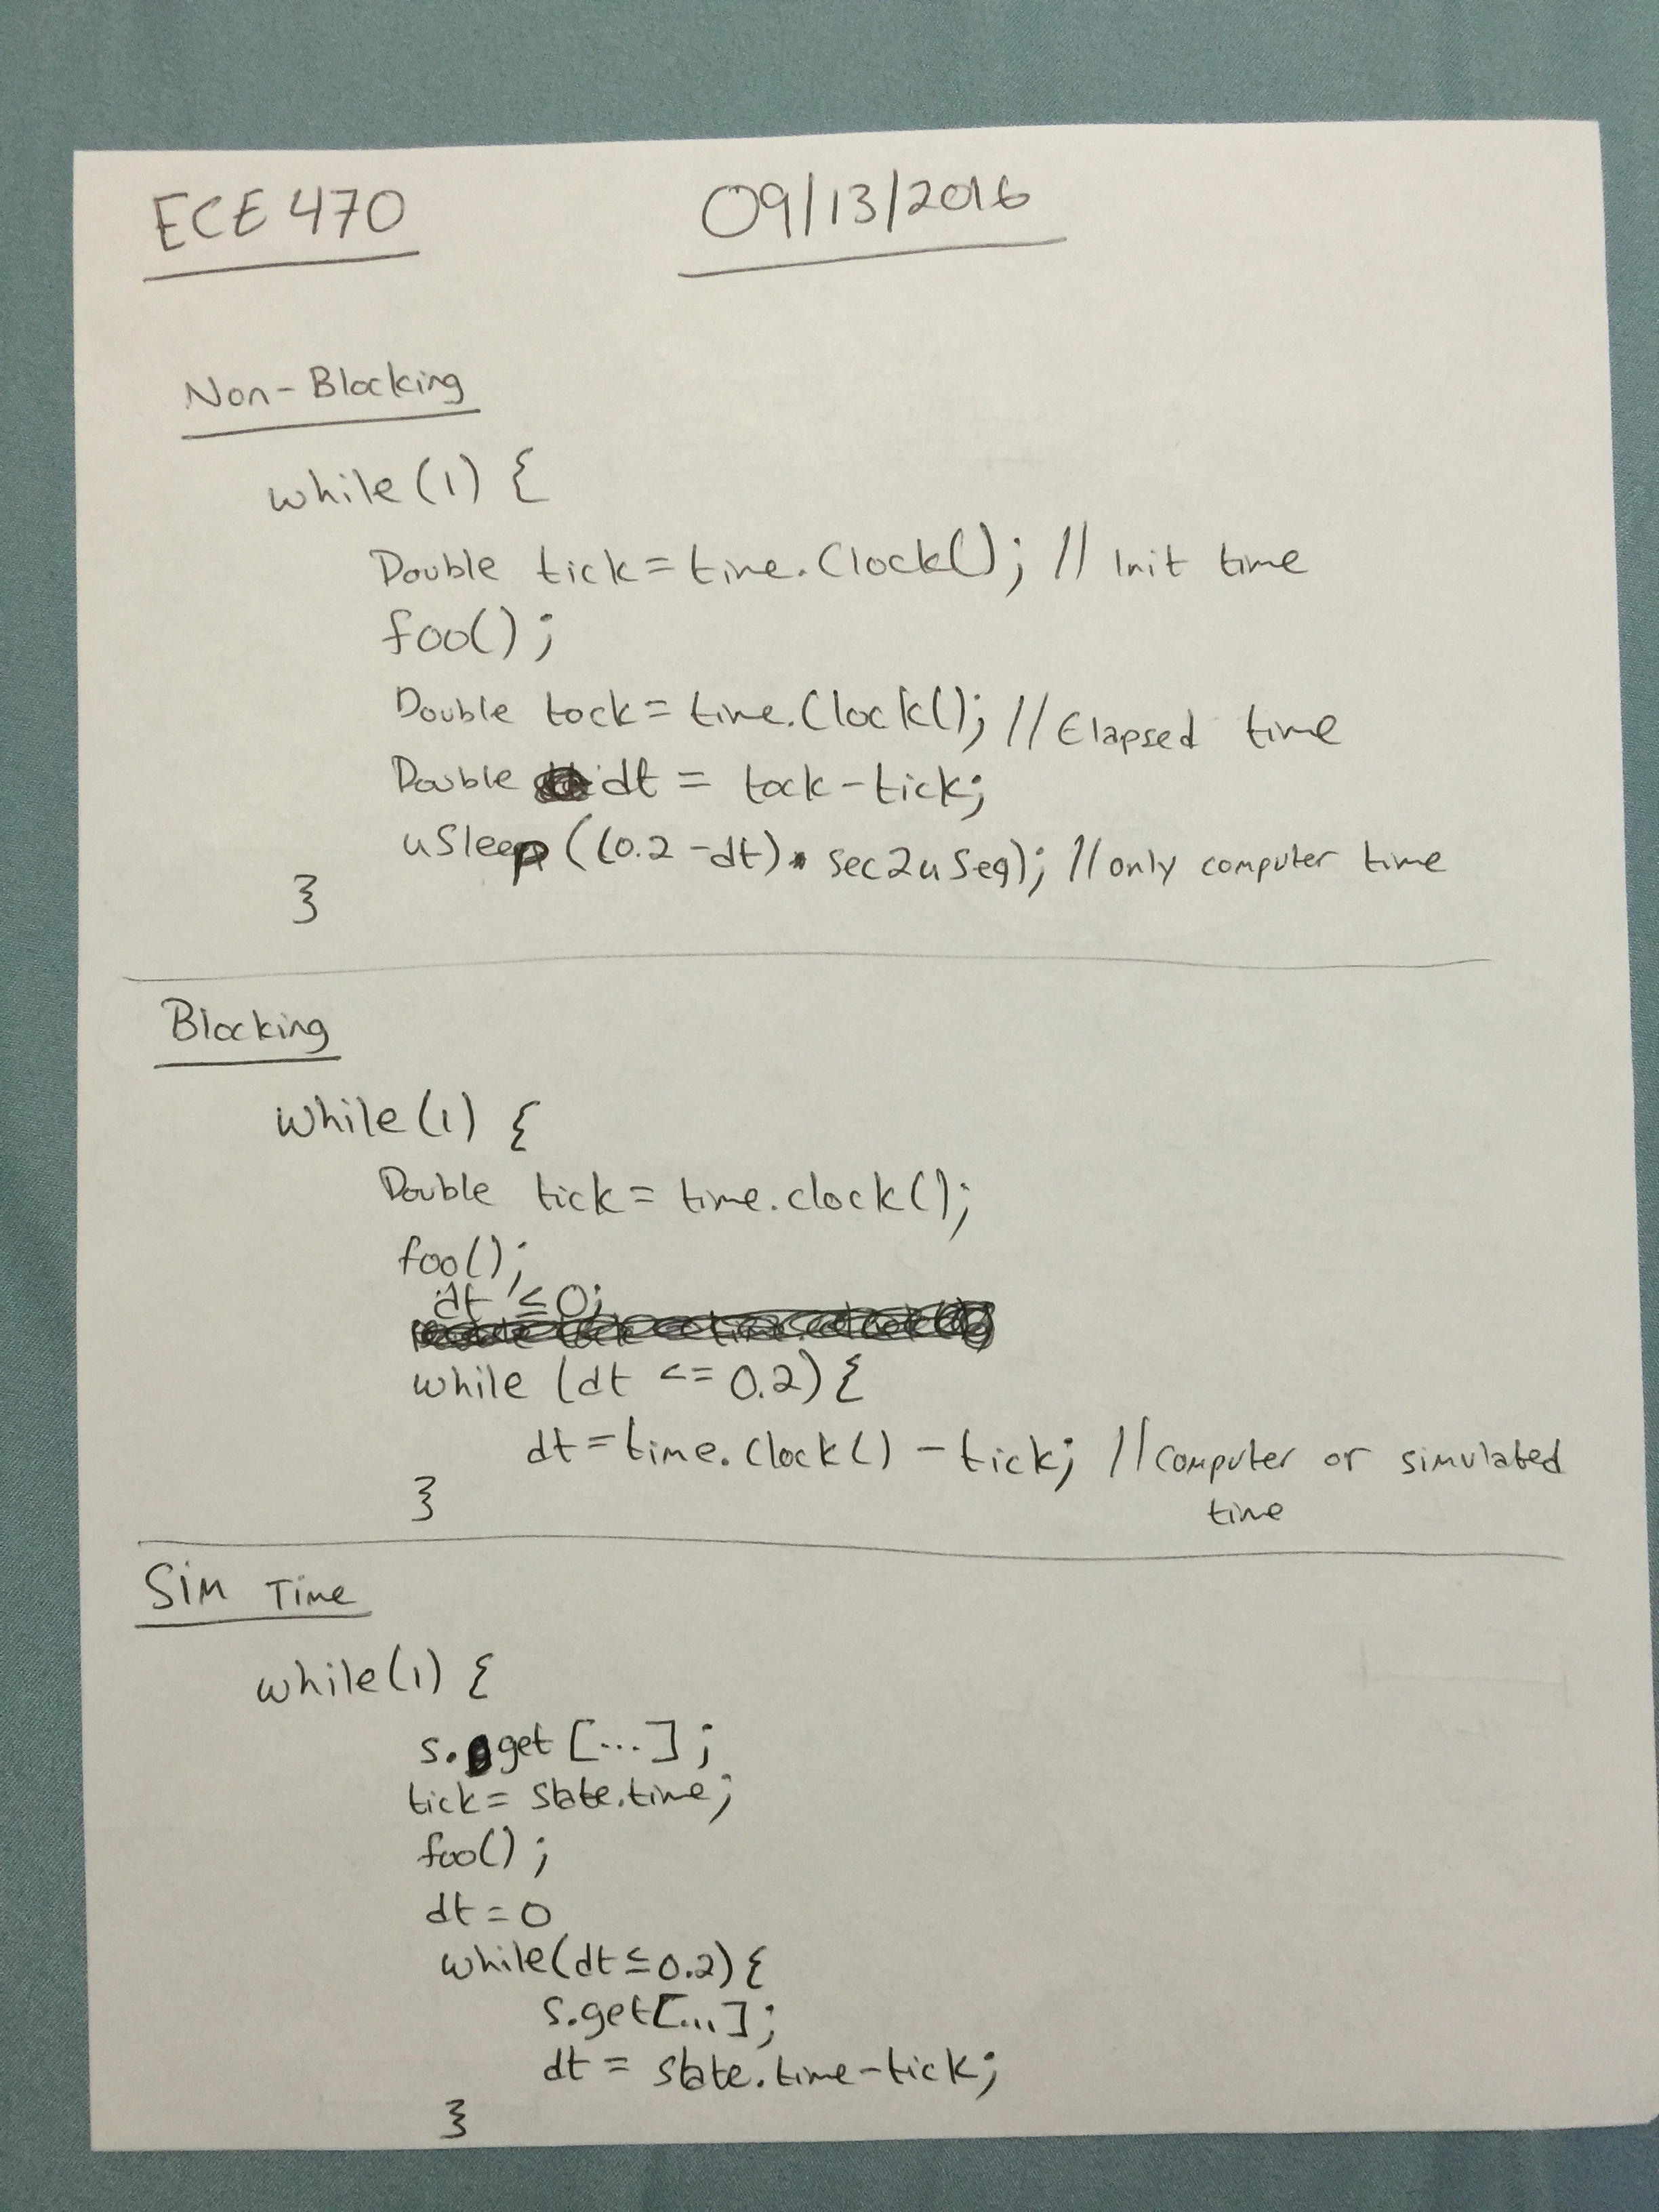 ECE 470 09/13/2016
Non-Blocking
while(1) {
Double tick = time.Clock(); // Init time
foo();
Double tock = time.Clock(); // Elapsed time
Double dt = tock - tick;
uSleep ((0.2 - dt) * sec2useq); // only computer time
}
Blocking
While(1) {
Double tick = time.clock();
foo();
dt ≤ 0;
while (dt <= 0.2) {
dt = time.Clock() - tick; // computer or simulated
time
}
Sim Time
while(1) {
s.get [...];
tick = state.time;
foo();
dt = 0
while(dt ≤ 0.2) {
s.get[...];
dt = state.time - tick;
}